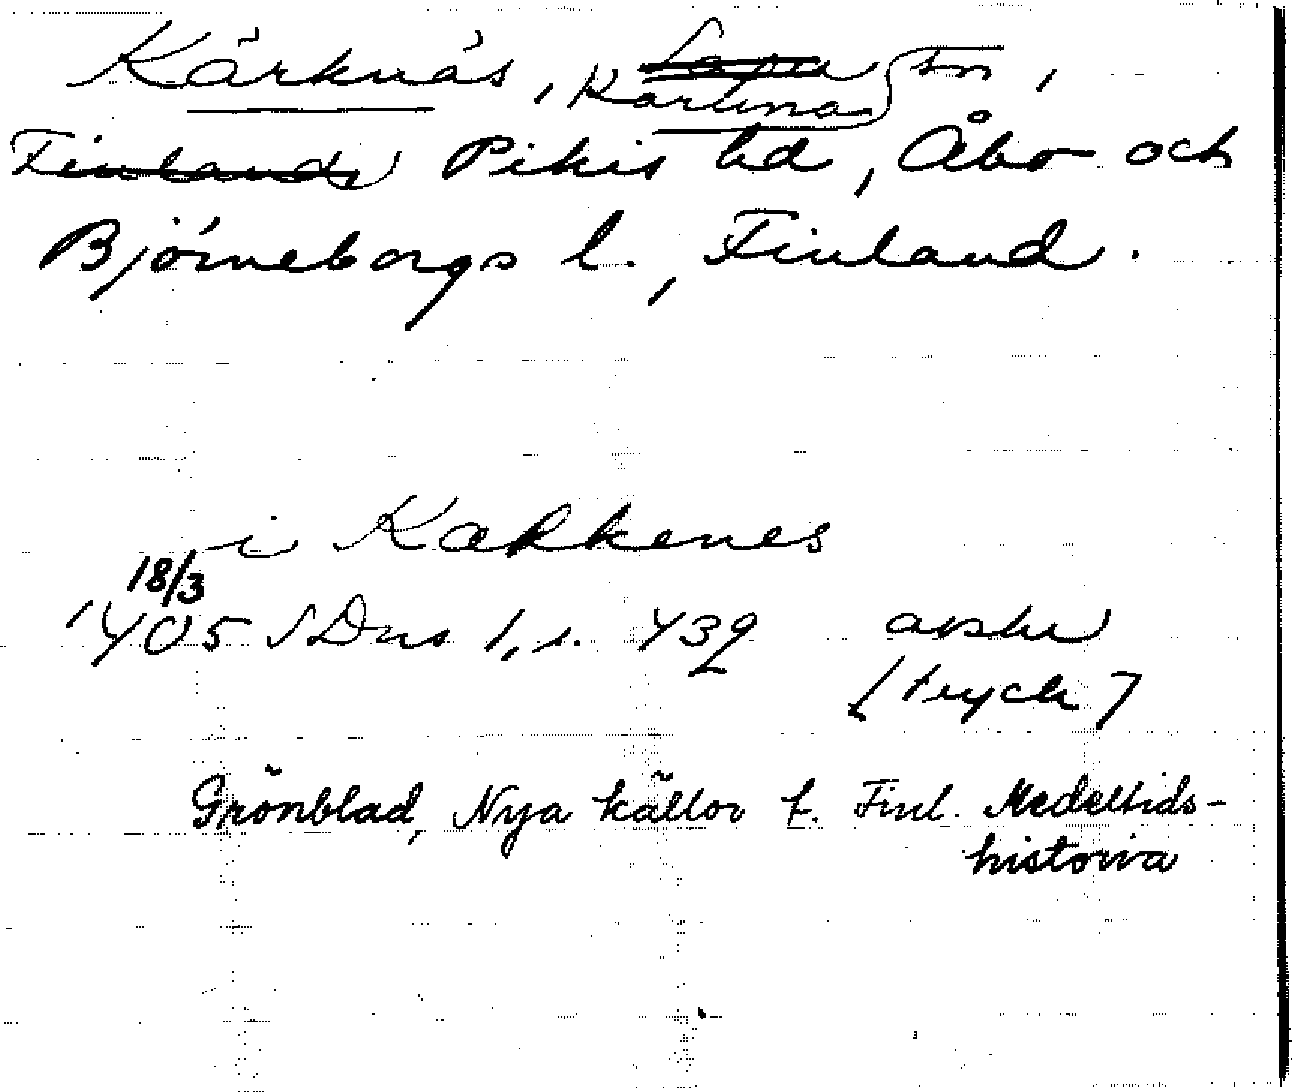 Kärknäs, Karuna sn,
Pikis hd, Åbo och
Björneborgs l., Finland.
i Kærkenes
18/3
1405 SDns 1, s. 439 avskr
(tryck)
Grönblad, Nya källor t. Finl. Medeltids-
historia